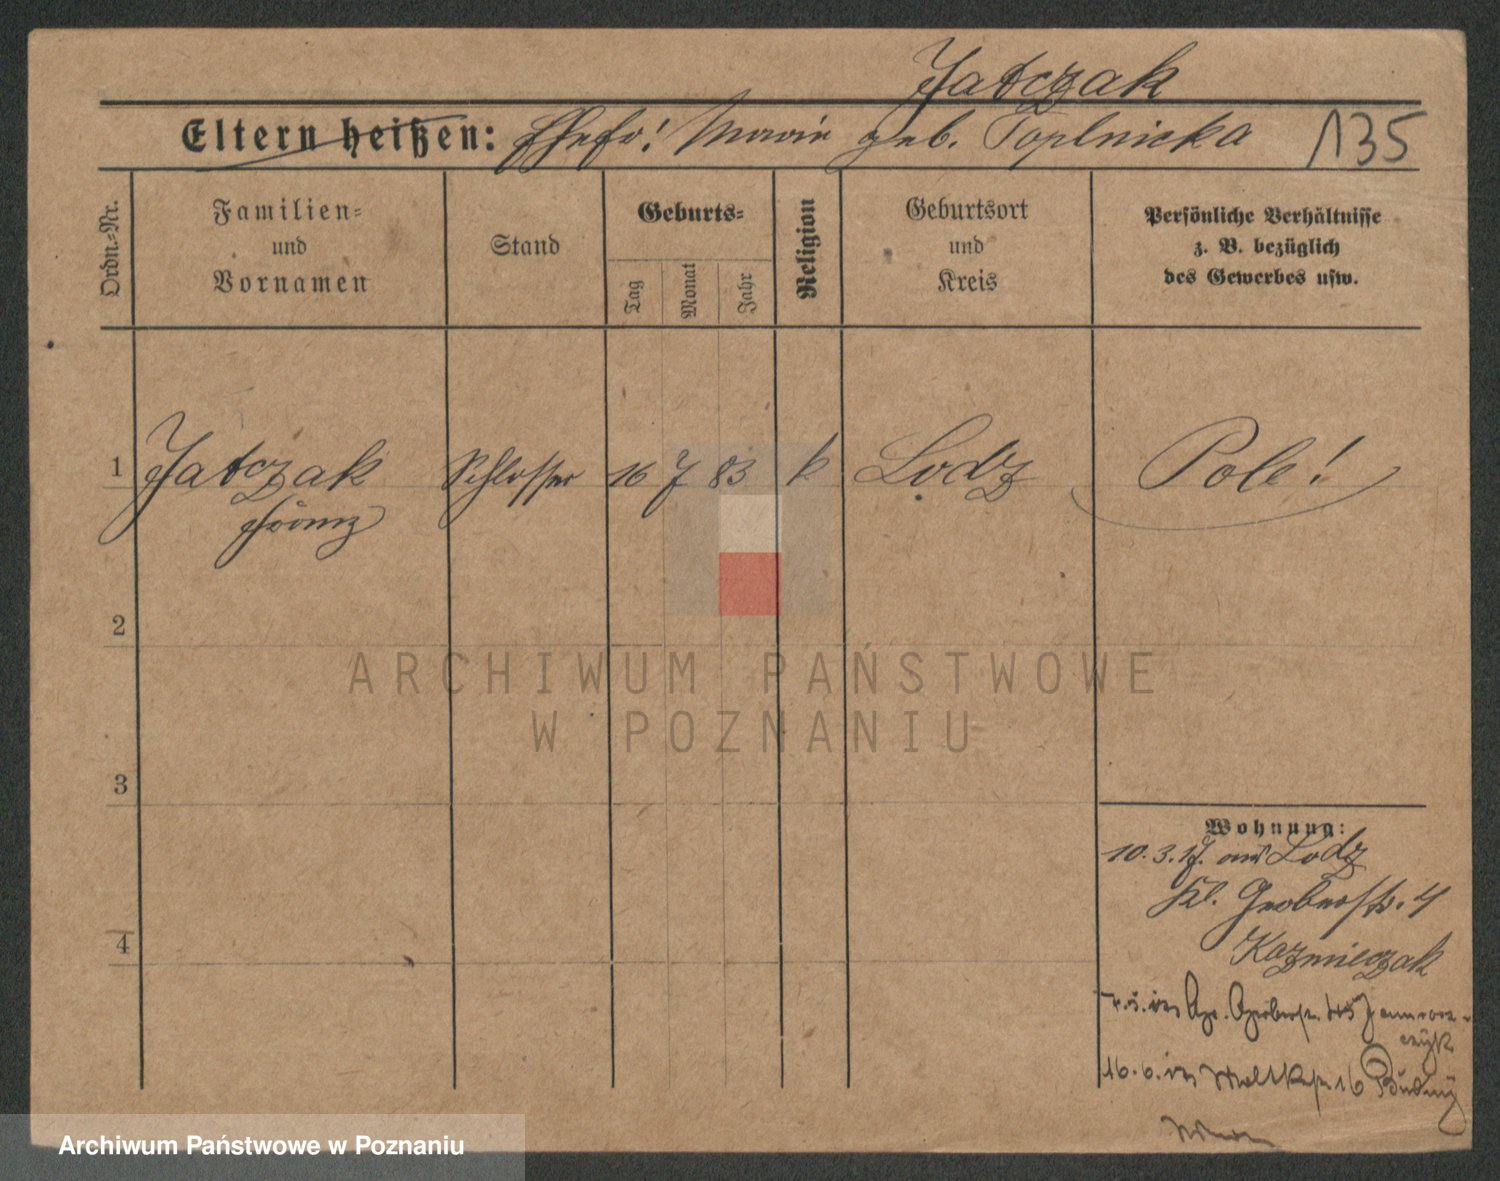 Jatczak
Eltern heißen: Ehefr! Marie geb. Toplnicka 135
Ordn.-Nr.
Familien-
und
Vornamen
Stand
Geburts-
Tag
Monat
Jahr
Religion
Geburtsort
und
Kreis
Persönliche Verhältnisse
z. B. bezüglich
des Gewerbes usw.
1 Jatczak Schlosser 16 7 83 k Lodz Pole!
Franz
2
ARCHIWUM PAŃSTWOWE
W POZNANIU
3
Wohnung:
10. 3. 17. aus Lodz
Kl. Gerberstr. 4
Kazmierczak
4
16. 6. Moltkestr. 16
Archiwum Państwowe w Poznaniu